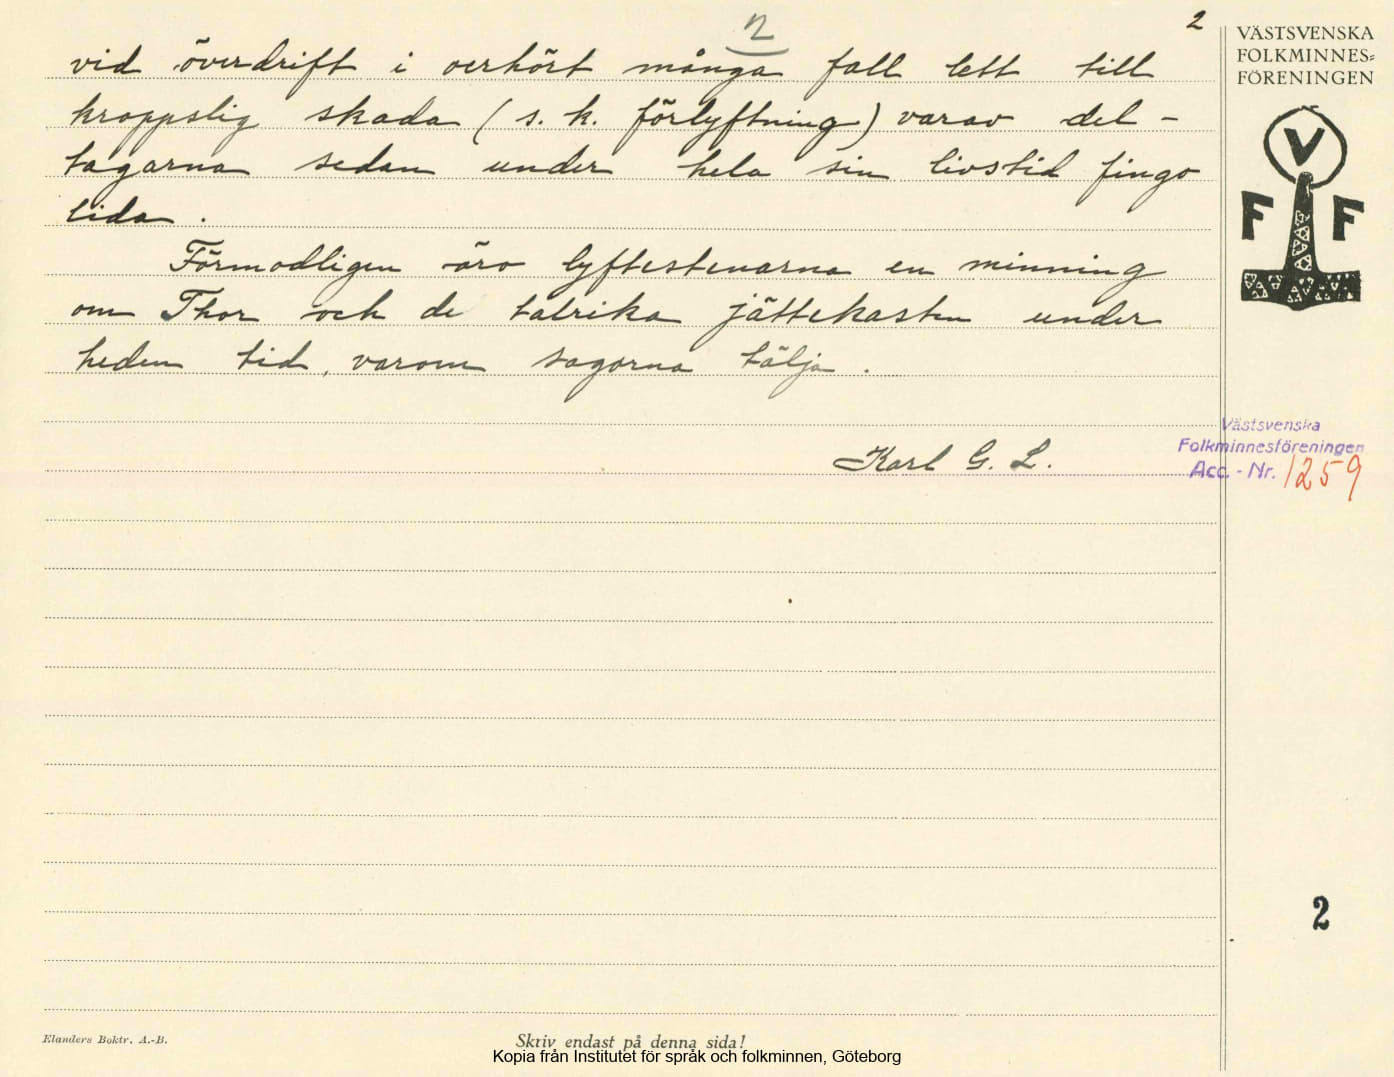 2
2
VÄSTSVENSKA
FOLKMINNES=
FÖRENINGEN
V
F F
vid överdrift i oerhört många fall lett till
kroppslig skada (s. k. förlyftning) varav del -
tagarna sedan under hela sin livstid fingo
lida.
Förmodligen äro lyftestenarna en minning
om Thor och de talrika jättekasten under
heden tid, varom sagorna tälja.
Karl G. L.
Västsvenska
Folkminnesföreningen
Acc. - Nr. 1259
2
Elanders Boktr. A.-B.
Skriv endast på denna sida!
Kopia från Institutet för språk och folkminnen, Göteborg